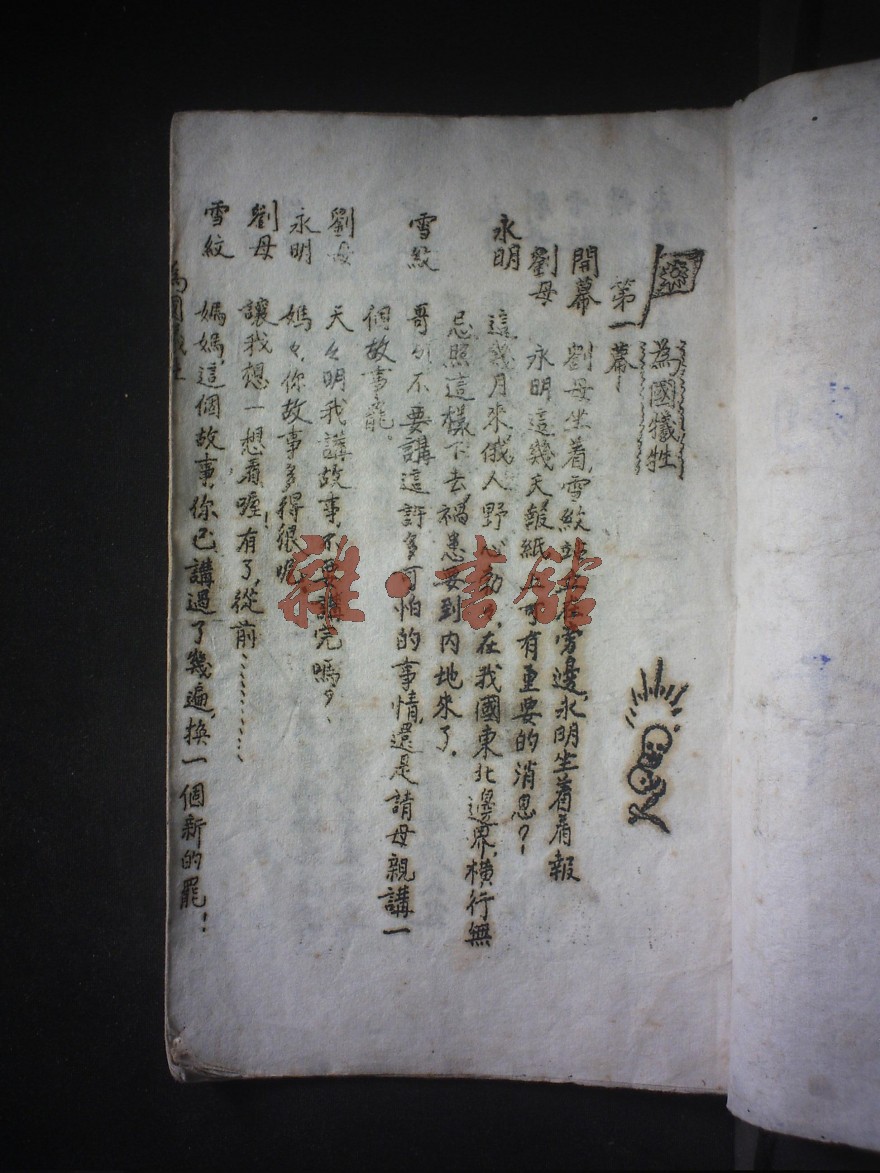 為國犧牲
第一幕
開幕 劉母坐着,雪紋站立在旁邊,永明坐着看報
劉母 永明這幾天報紙上可有重要的消息?
永明 這幾月來俄人野心勃々,在我國東北邊界,橫行無
忌照這樣下去,禍患要到內地來了.
雪紋 哥々不要講這許多可怕的事情,還是請母親講一
個故事罷。
劉母 天々明我講故事,不要講完嗎?
永明 媽々,你故事多得很呢
劉母 讓我想一想看喔!有了,從前、、、、、、、、、
雪紋 媽媽,這個故事,你已講過了幾遍,換一個新的罷!
為國
雜·書館